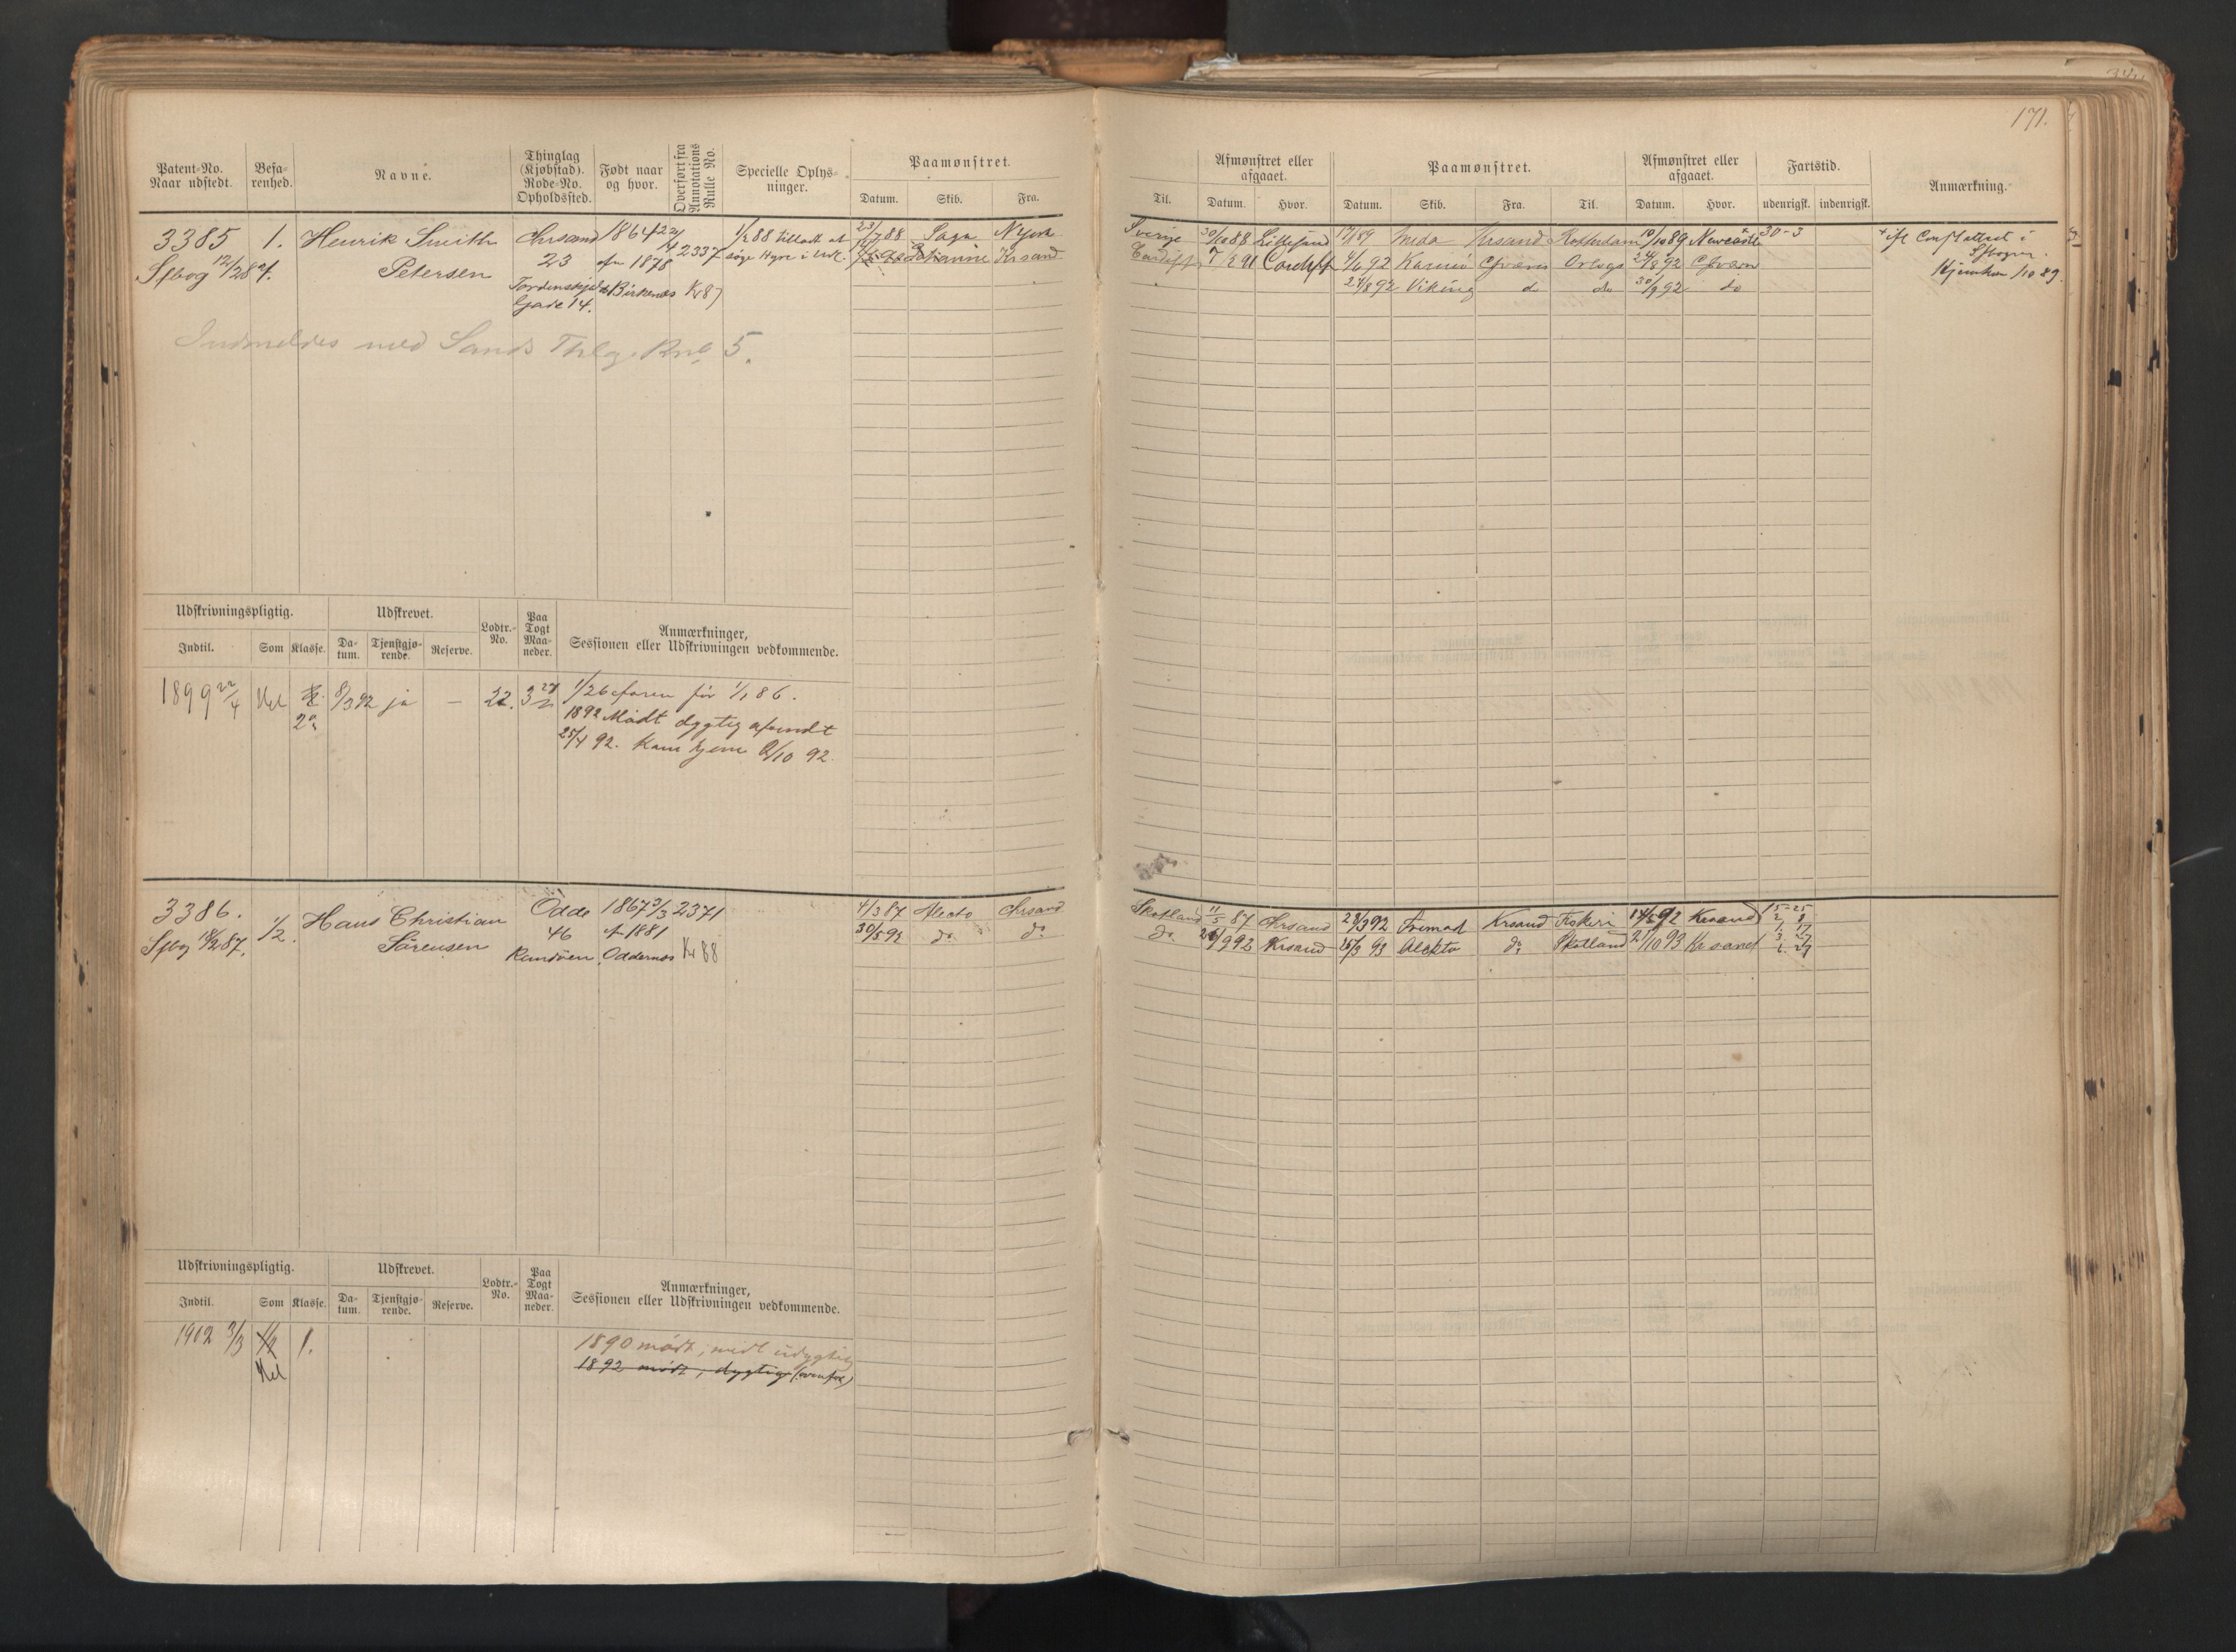 171.
Patent-No. Naar udstedt.
Befarenhed.
Navne.
Thinglag (Kjøbstad). Rode-No. Opholdssted.
Født naar og hvor.
Overført fra Annotations Rulle No.
Specielle Oplysninger.
Paamønstret.
Datum. Skib. Fra.
Til.
Afmønstret eller afgaaet.
Datum. Hvor.
Paamønstret.
Datum. Skib. Fra. Til.
Afmønstret eller afgaaet.
Datum. Hvor.
Fartstid.
udenrigsk. indenrigsk.
Anmærkning.
3385 1. Henrik Smith Chrsand 1864 22/4 2337
Petersen 23 1878
Tordenskjolds Birkenæs Kr 87
Gade 14.
1/2 88 tilladt at
søge Hyre i Udl.
23/7 88 Saga NYork Sverige 30/10 88 Lillesand
Krsand Cardiff Cardiff
89 Krsand Rotterdam 10/10 89 Newcastle 30-3
4/6 92 Karmø Orlogs 24/8 92
24/8 92 Viking do do 30/9 92 do
Indmeldes med Sands Thlg. Rul 5.
Udskrivningspligtig. Udskrevet. Lodtr.-No. Paa Togt Maaneder. Anmærkninger, Sessionen eller Udskrivningen vedkommende.
Indtil. Som Klasse. Datum. Tjenstgjørende. Reserve.
1899 22/4 Hel 2a 8/3 92 ja — 22. 3
1/26 faren før 1/1 86.
1892 Mødt dygtig afsendt
25/4 92. Kom hjem 2/10 92.
3386. 1/2. Hans Christian Odde 1867 3/3 2371
Sørensen 46 1881
Randøen Oddernæs Kr 88
4/3 87 Alecto Chrsand Skotland 11/5 87 Chrsand
30/5 92 do. do. do. 26/9 92 Krsand
28/3 92 Fremad Krsand Fiskeri 14/5 92 Krsand 5-25
25/3 93 Alekto do. Skotland 21/10 93 Krsand
Udskrivningspligtig. Udskrevet. Lodtr.-No. Paa Togt Maaneder. Anmærkninger, Sessionen eller Udskrivningen vedkommende.
Indtil. Som Klasse. Datum. Tjenstgjørende. Reserve.
1902 3/3 1/2 1.
Hel
1890 mødt; midl udygtig
1892 mødt; dygtig